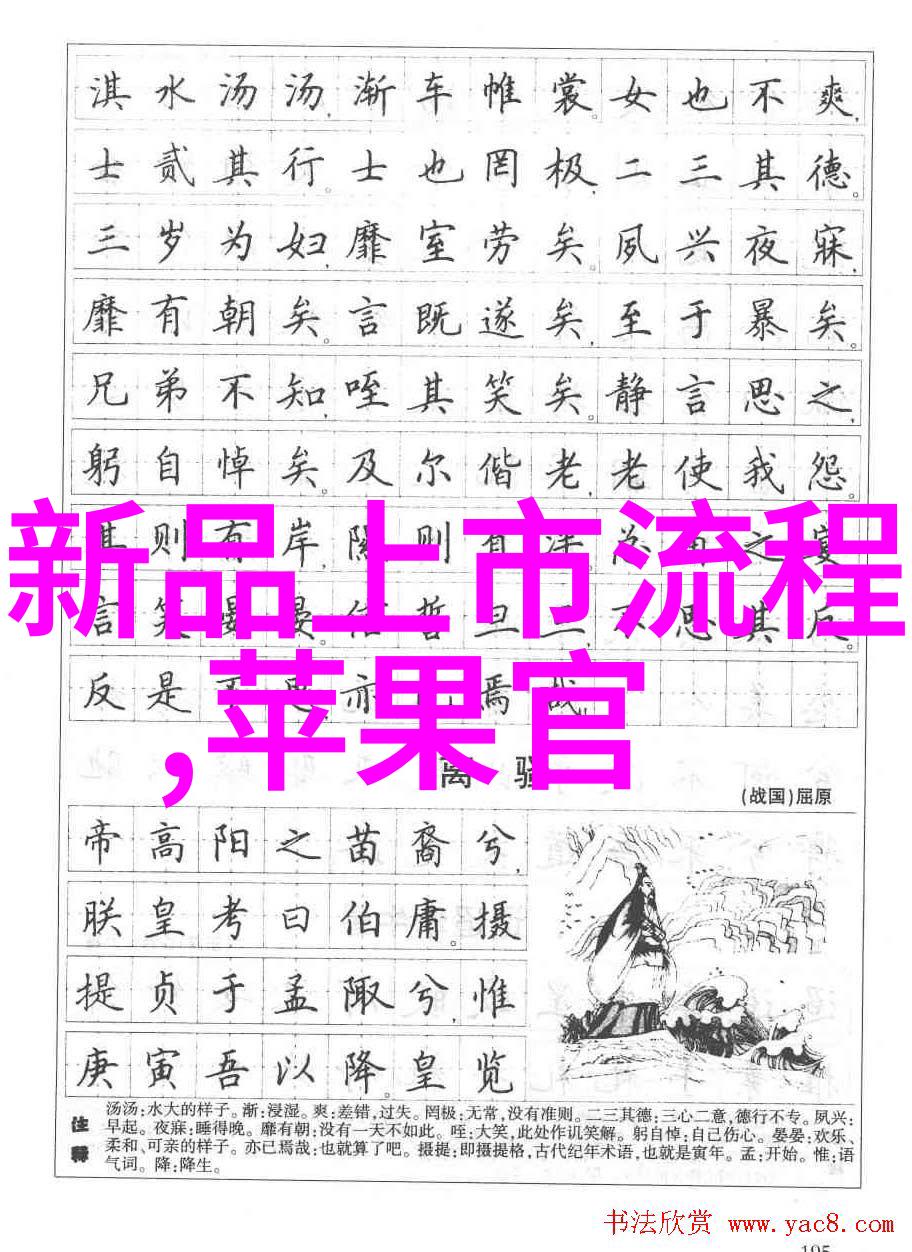 淇水汤汤,渐车帷裳。女也不爽,
士贰其行。士也罔极,二三其德。
三岁为妇,靡室劳矣。夙兴夜寐,
靡有朝矣。言既遂矣,至于暴矣。
兄弟不知,咥其笑矣。静言思之,
躬自悼矣。及尔偕老,老使我怨。
则有岸,则
新品上市流程
言笑晏
思其反。
反是
焉哉
,苹果官
离骚
(战国)屈原
帝高阳之苗裔兮,
朕皇考曰伯庸。摄
提贞于孟陬兮,惟
庚寅吾以降。皇览
注释
汤汤:水大的样子。渐:浸湿。爽:差错,过失。罔极:无常,没有准则。二三其德:三心二意,德行不专。夙兴:
早起。夜寐:睡得晚。靡有朝:没有一天不如此。咥:大笑,此处作讥笑解。躬自悼:自己伤心。晏晏:欢乐、
柔和、可亲的样子。亦已焉哉:也就算了吧。摄提:即摄提格,古代纪年术语,也就是寅年。孟:开始。惟:语
气词。降:降生。
书法欣赏 www.yac8.com